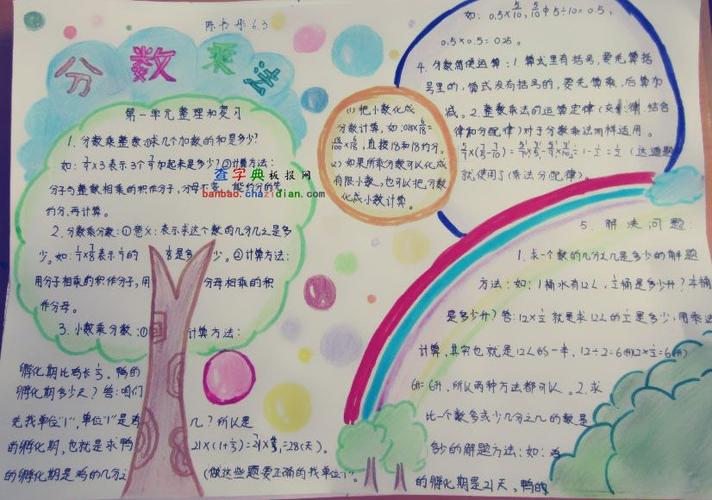 陈 6.3
分数乘法
第一单元整理和复习
1. 分数乘整数:求几个加数的和是多少?
如: 3表示3个 加起来是多少? ②计算方法:
分子与整数相乘的积作分子,分母不变, 能约分的先
约分,再计算。
查字典板报网
banbao.chazidian.com
2. 分数乘分数: ① 表示求这个数的几分几之是多
少。如: 表示 的 是多 少。②计算方法:
用分子相乘的积作分子,用 分母相乘的积
作分母。
3. 小数乘分数: ① 计算方法:
(1) 把小数化成
分数计算,如:
直接18和18约分。
(2) 如果所乘分数可以化成
有限小数,也可以把分数
化成小数计算。
如: 0.5× 5÷10=0.5,
0.5×0.5=0.25。
4. 分数简便运算: 1 算式里有括号,要先算括
号里的,算式没有括号的,要先算乘,后算加
减。2. 整数乘法的运算定律(交 律,结合
律和分配律)对于分数乘法同样适用。
(这道题
就使用了(乘法分配律)。
5. 解决问题:
1. 求一个数的几分之几是多少的解题
方法: 如: 1桶水有12L, 桶是多少升?
是多少升? 答: 12×½就是求12L的½是多少,用乘法
计算,其实也就是12L的一半, 12÷2=6
6,所以两种方法都可以。2. 求
比一个数多或少几分之几的数是
多少的解题方法: 如: 鸡
的孵化期是21天, 鸭的
孵化期比鸡长⅓。鸭的
孵化期多少天? 答:咱们
先找单位"1",单位"1"是鸡 几? 所以是
的孵化期,也就是求鸭 21×(1+⅓)= =28(天)。
的孵化期是鸡的几分之 (做这些题要正确的找单位"1"。